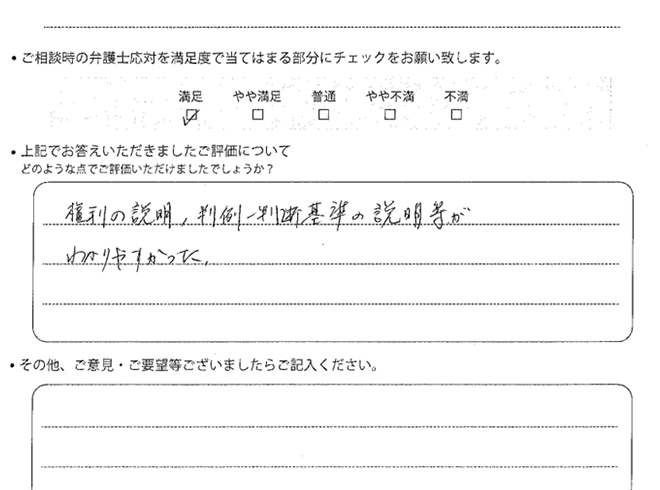 • ご相談時の弁護士応対を満足度で当てはまる部分にチェックをお願い致します。
満足 やや満足 普通 やや不満 不満
☑ □ □ □ □
• 上記でお答えいただきましたご評価について
どのような点でご評価いただけましたでしょうか？
権利の説明，判例-判断基準の説明等が
わかりやすかった．
• その他、ご意見・ご要望等ございましたらご記入ください。